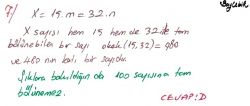 7) X = 15.m = 32.n
X sayısı hem 15 hem de 32 ile tam
bölünebilen bir sayı okek(15,32) = 480
ve 480 nin katı bir sayıdır.
Şıklara bakıldığında 100 sayısına tam
bölünemez.
CEVAP: D